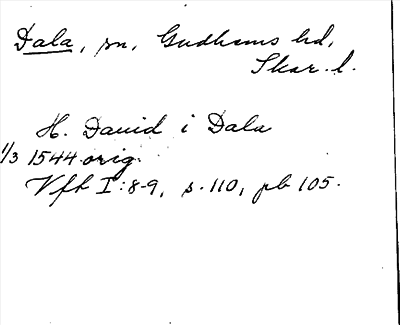 Dala, sn, Gudhems hd,
Skar. l.
H. David i Dala
1/3 1544 orig.
Vft I:8-9, s. 110, pb 105.